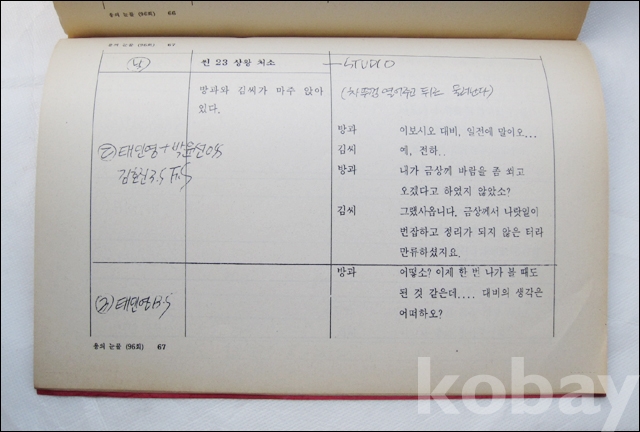 용의 눈물 (96회)  66
용의 눈물 (96회)  67
(낮)
씬 23 상왕 처소
STUDIO
방과와 김씨가 마주 앉아
있다.
방과  이보시오 대비, 일전에 말이오...
김씨  예, 전하..
방과  내가 금상께 바람을 좀 쐬고
오겠다고 하였지 않았소?
김씨  그랬사옵니다. 금상께서 나랏일이
번잡하고 정리가 되지 않은 터라
만류하셨지요.
방과  어떻소? 이제 한 번 나가 볼 때도
된 것 같은데.... 대비의 생각은
어떠하오?
② 태민영 +
F.S
태민영 B.S
용의 눈물 (96회)  67
kobay